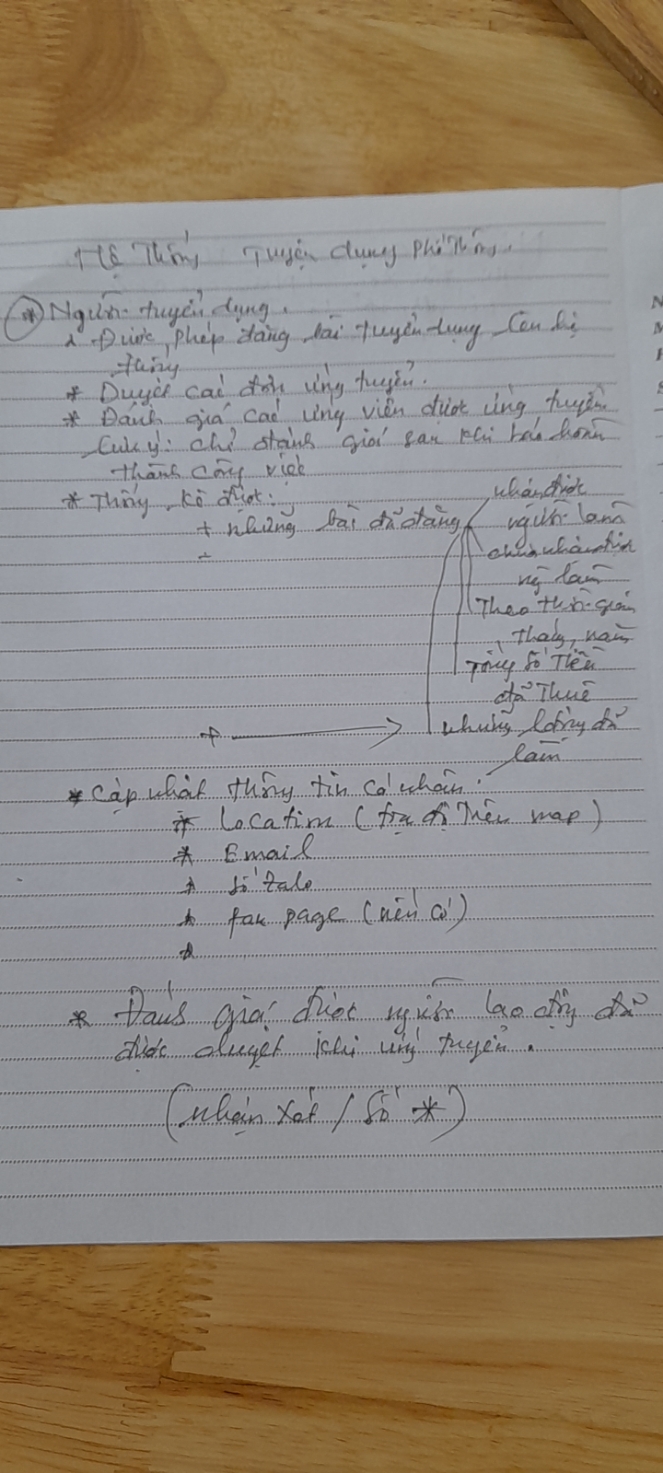 Hệ Thống Tuyển dụng Phổ Thông.
* Người tuyển dụng.
* Được phép đăng bài tuyển dụng lên hệ
thống
* Duyệt các đơn ứng tuyển.
* Đánh giá các ứng viên được ứng tuyển
Lưu ý: chỉ đánh giá sau khi hoàn
thành công việc
* Thống kê được:
+ những bài đã đăng
nhận được
người làm
chưa nhận được
ng làm
Theo thời gian
, tháng, năm
Tổng số Tiền
đã Thuê
+
những đã
làm
* Cập nhật thông tin cá nhân.
* Location (trên map)
* Email
* số zalo
* fan page (nếu có)
*
* Đánh giá được người lao động đã
được duyệt khi ứng tuyển.
(nhận xét / số *)